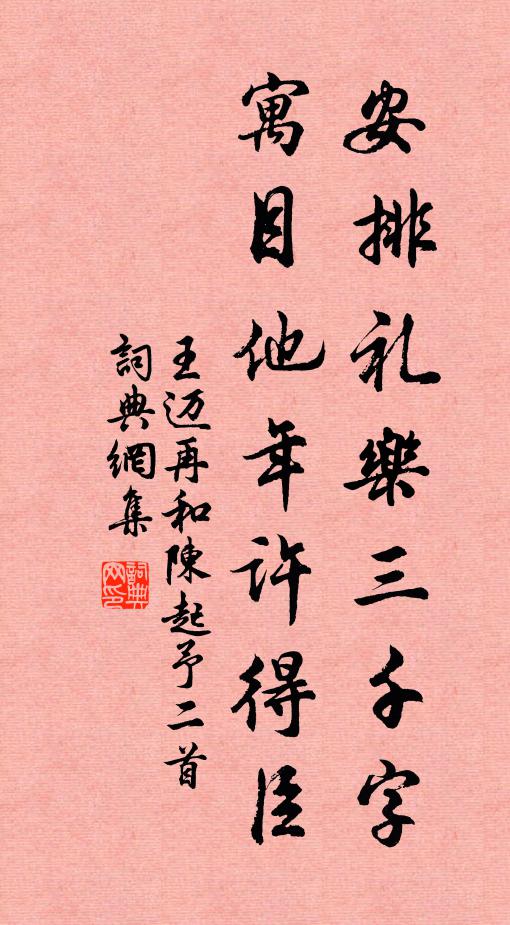 安排礼樂三千字
寓目他年許得臣
王迈再和陳起予二首
詞典網集
詞典網印